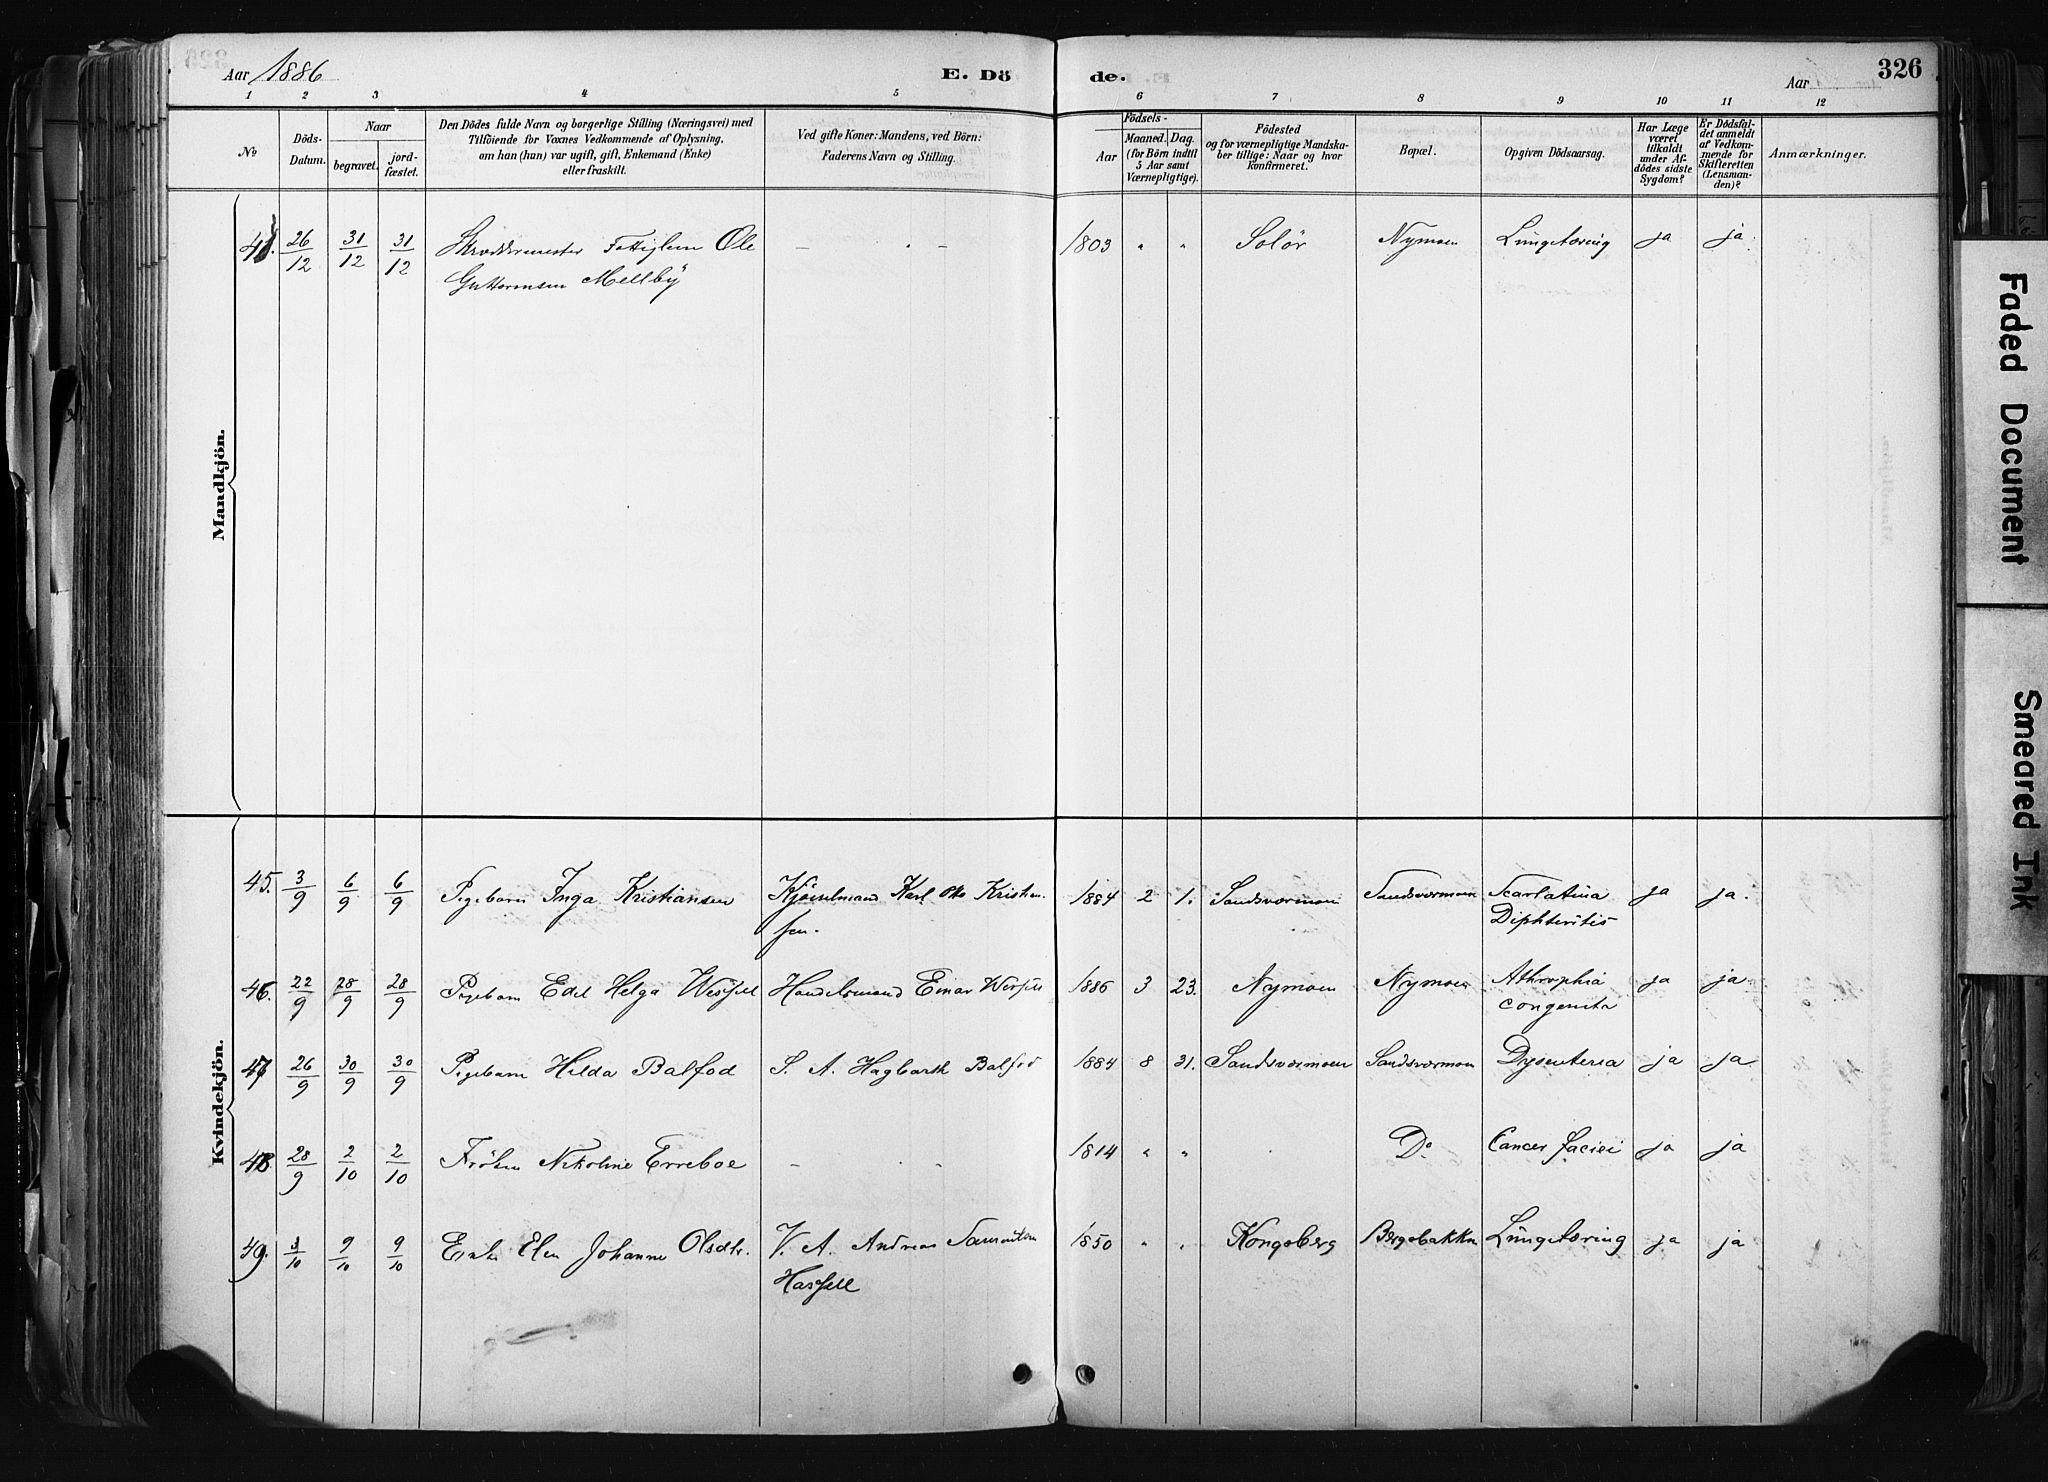 Aar 1886
E. Dö
de.
Aar
326
1 2 3 4 5 6 7 8 9 10 11 12
№
Döds-
Datum.
Naar
begravet.
jord-
fæstet.
Den Dödes fulde Navn og borgerlige Stilling (Næringsvei) med
Tilföiende for Voxnes Vedkommende af Oplysning,
om han (hun) var ugift, gift, Enkemand (Enke)
eller fraskilt.
Ved gifte Koner: Mandens, ved Börn:
Faderens Navn og Stilling.
Födsels-
Aar
Maaned. Dag.
(for Börn indtil
5 Aar samt
Værnepligtige).
Födested
og for værnepligtige Mandska-
ber tillige: Naar og hvor
konfirmeret.
Bopæl.
Opgiven Dödsaarsag.
Har Læge
været
tilkaldt
under Af-
dödes sidste
Sygdom?
Er Dödsfal-
det anmeldt
af Vedkom-
mende for
Skifteretten
(Lensman-
den)?
Anmærkninger.
Mandkjön.
26/12 31/12 31/12 Skræddermester Ole – " – 1803 " " Solör Nymoen Lungetæring ja ja.
Guttormsen Mellby
Kvindekjön.
45. 3/9 6/9 6/9 Pigebarn Inga Kristiansen Karl Otto Kristian- 1884 2 1. Sandsværmoen Sandsværmoen Scarlatina ja ja.
sen.
Diphteritis
46. 22/9 28/9 28/9 Pigebarn Edel Helga Handelsmand Einar 1886 3 23. Nymoen Nymoen Athrophia ja ja
congenita
47 26/9 30/9 30/9 Pigebarn Hilda Balfod S. A. Hagbarth Balfod 1884 8 31. Sandsværmoen Sandsværmoen Dysenteria ja ja
48 28/9 2/10 2/10 Fröken Nikoline Erreboe – " 1814 " " Do Cancer faciei ja ja
49. 3/10 9/10 9/10 Enke Elen Johanne Olsdtr. V. A. Andreas 1850 " " Kongsberg Bergsbakken Lungetæring ja ja
Hassell
Faded Document
Smeared Ink